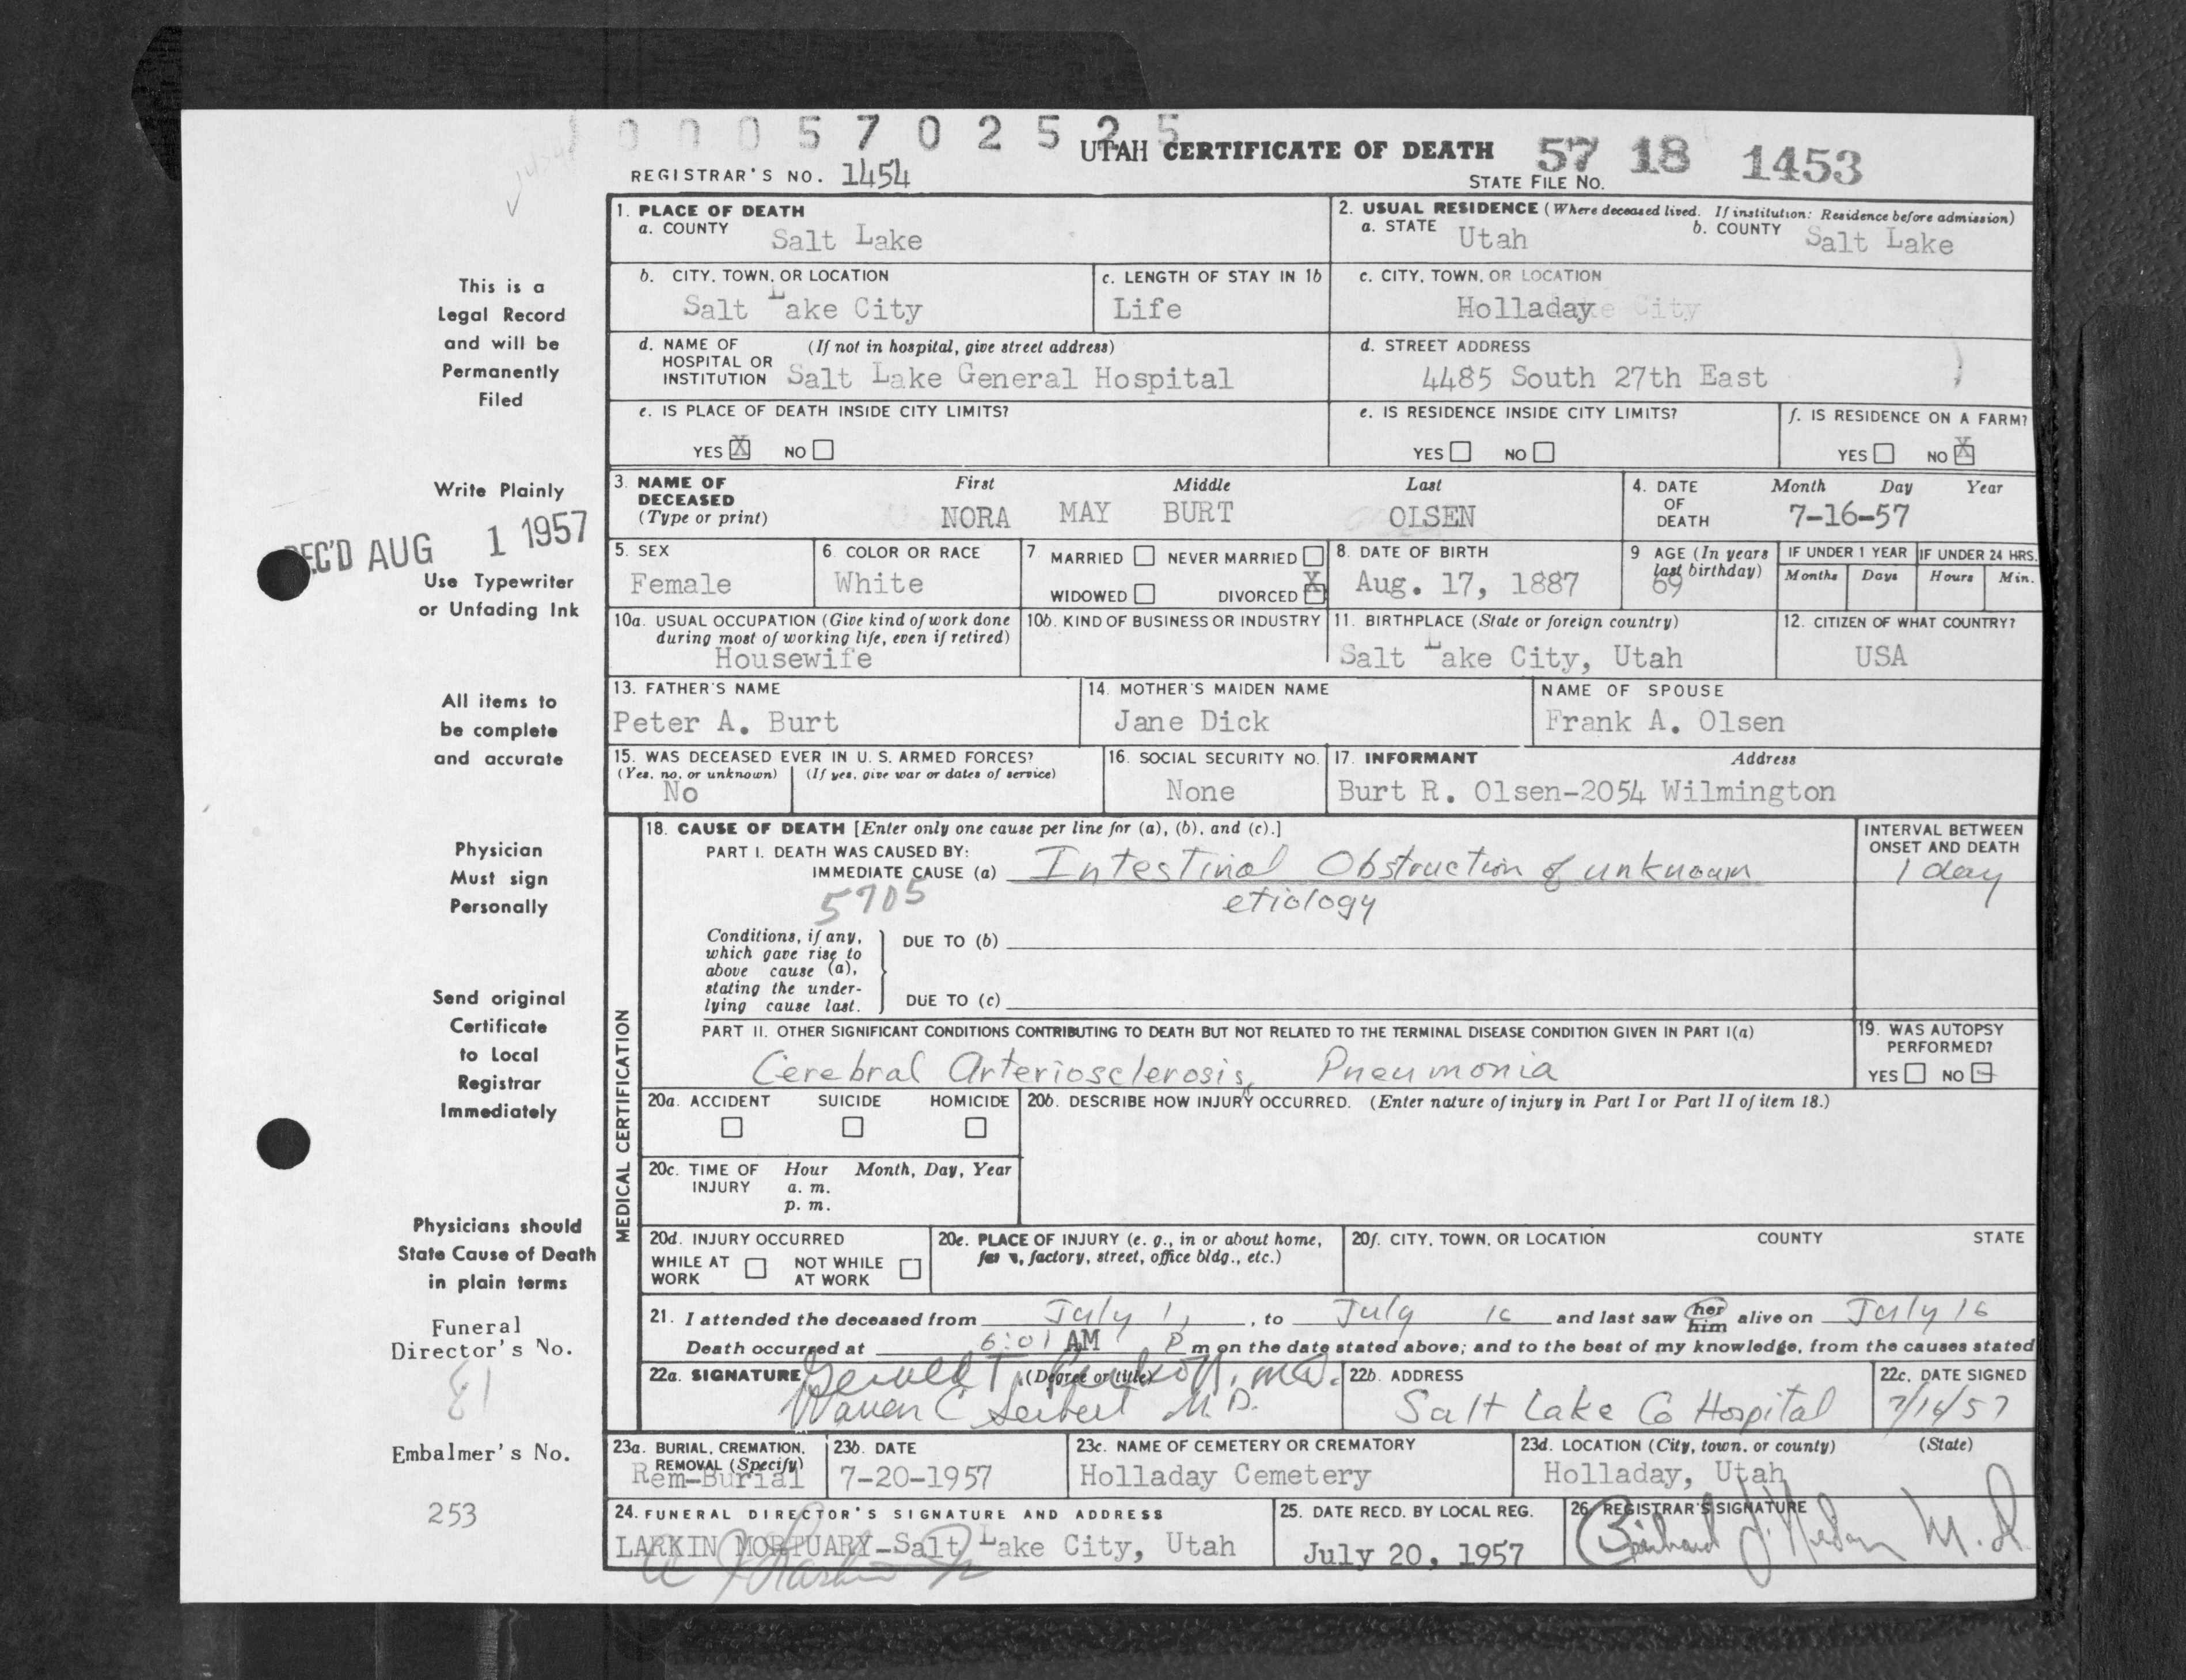 0 0 0 5 7 0 2 5 2 5
UTAH CERTIFICATE OF DEATH 57 18 1453
REGISTRAR'S NO. 1454
STATE FILE NO.
This is a
Legal Record
and will be
Permanently
Filed
Write Plainly
REC'D AUG 1 1957
Use Typewriter
or Unfading Ink
All items to
be complete
and accurate
Physician
Must sign
Personally
Send original
Certificate
to Local
Registrar
Immediately
Physicians should
State Cause of Death
in plain terms
Funeral
Director's No.
81
Embalmer's No.
253
1. PLACE OF DEATH
a. COUNTY Salt Lake
2. USUAL RESIDENCE (Where deceased lived. If institution: Residence before admission)
a. STATE Utah b. COUNTY Salt Lake
b. CITY, TOWN, OR LOCATION
Salt Lake City
c. LENGTH OF STAY IN 1b
Life
c. CITY, TOWN, OR LOCATION
Holladay
d. NAME OF (If not in hospital, give street address)
HOSPITAL OR
INSTITUTION Salt Lake General Hospital
d. STREET ADDRESS
4485 South 27th East
e. IS PLACE OF DEATH INSIDE CITY LIMITS?
YES X NO
e. IS RESIDENCE INSIDE CITY LIMITS?
YES NO
f. IS RESIDENCE ON A FARM?
YES NO X
3. NAME OF DECEASED (Type or print)
First Middle Last
NORA MAY BURT OLSEN
4. DATE OF DEATH
Month Day Year
7-16-57
5. SEX
Female
6. COLOR OR RACE
White
7. MARRIED NEVER MARRIED
WIDOWED DIVORCED X
8. DATE OF BIRTH
Aug. 17, 1887
9 AGE (In years
last birthday)
69
IF UNDER 1 YEAR IF UNDER 24 HRS.
Months Days Hours Min.
10a. USUAL OCCUPATION (Give kind of work done
during most of working life, even if retired)
Housewife
10b. KIND OF BUSINESS OR INDUSTRY
11. BIRTHPLACE (State or foreign country)
Salt Lake City, Utah
12. CITIZEN OF WHAT COUNTRY?
USA
13. FATHER'S NAME
Peter A. Burt
14. MOTHER'S MAIDEN NAME
Jane Dick
NAME OF SPOUSE
Frank A. Olsen
15. WAS DECEASED EVER IN U. S. ARMED FORCES?
(Yes, no, or unknown) (If yes, give war or dates of service)
No
16. SOCIAL SECURITY NO.
None
17. INFORMANT Address
Burt R. Olsen-2054 Wilmington
MEDICAL CERTIFICATION
18. CAUSE OF DEATH [Enter only one cause per line for (a), (b), and (c).]
PART I. DEATH WAS CAUSED BY:
IMMEDIATE CAUSE (a) Intestinal Obstruction of unknown
etiology
5705
INTERVAL BETWEEN
ONSET AND DEATH
1 day
Conditions, if any,
which gave rise to
above cause (a),
stating the under-
lying cause last.
DUE TO (b)
DUE TO (c)
PART II. OTHER SIGNIFICANT CONDITIONS CONTRIBUTING TO DEATH BUT NOT RELATED TO THE TERMINAL DISEASE CONDITION GIVEN IN PART I(a)
Cerebral Arteriosclerosis, Pneumonia
19. WAS AUTOPSY
PERFORMED?
YES NO
20a. ACCIDENT SUICIDE HOMICIDE
20b. DESCRIBE HOW INJURY OCCURRED. (Enter nature of injury in Part I or Part II of item 18.)
20c. TIME OF INJURY
Hour Month, Day, Year
a. m.
p. m.
20d. INJURY OCCURRED
WHILE AT WORK NOT WHILE AT WORK
20e. PLACE OF INJURY (e. g., in or about home,
farm, factory, street, office bldg., etc.)
20f. CITY, TOWN, OR LOCATION COUNTY STATE
21. I attended the deceased from July 1, , to July 16 and last saw her him alive on July 16
Death occurred at 6:01 AM P m on the date stated above; and to the best of my knowledge, from the causes stated
22a. SIGNATURE (Degree or title) M.D.
Warren C Seibert M.D.
22b. ADDRESS
Salt Lake Co Hospital
22c. DATE SIGNED
7/16/57
23a. BURIAL, CREMATION,
REMOVAL (Specify)
Rem-Burial
23b. DATE
7-20-1957
23c. NAME OF CEMETERY OR CREMATORY
Holladay Cemetery
23d. LOCATION (City, town, or county) (State)
Holladay, Utah
24. FUNERAL DIRECTOR'S SIGNATURE AND ADDRESS
LARKIN MORTUARY-Salt Lake City, Utah
25. DATE RECD. BY LOCAL REG.
July 20, 1957
26. REGISTRAR'S SIGNATURE
M.D.